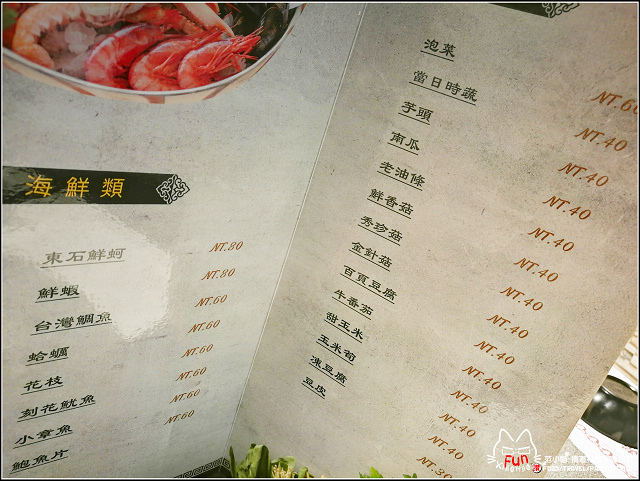 海鮮類
東石鮮蚵 NT.80
鮮蝦 NT.80
台灣鯛魚 NT.60
蛤蠣 NT.60
花枝 NT.60
刻花魷魚 NT.60
小章魚 NT.60
鮑魚片 NT.60
泡菜 NT.60
當日時蔬 NT.40
芋頭 NT.40
南瓜 NT.40
老油條 NT.40
鮮香菇 NT.40
秀珍菇 NT.40
金針菇 NT.40
百頁豆腐 NT.40
牛番茄 NT.40
甜玉米 NT.40
玉米筍 NT.40
凍豆腐 NT.40
豆皮 NT.30
Fun